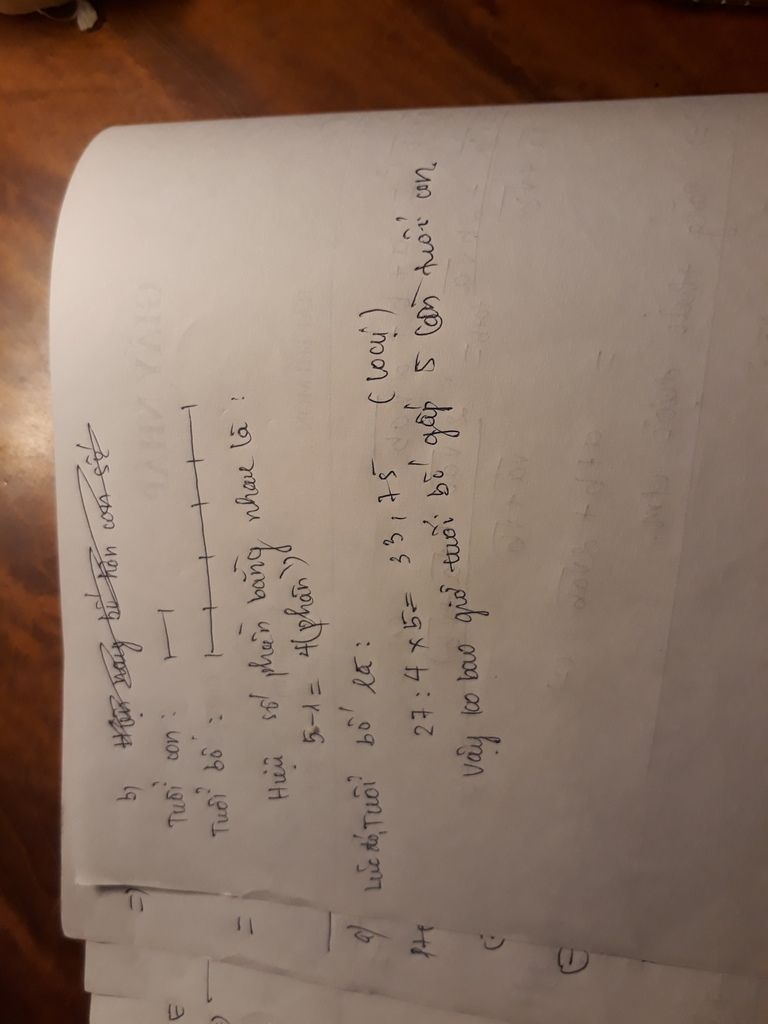 b) Hiện nay bố hơn con số
Tuổi con :
Tuổi bố :
Hiệu số phần bằng nhau là :
5-1 = 4 (phần)
Lúc đó, Tuổi bố là :
27 : 4 x 5 = 33,75 (loại)
Vậy ko bao giờ tuổi bố gấp 5 lần tuổi con
=)
=
a)